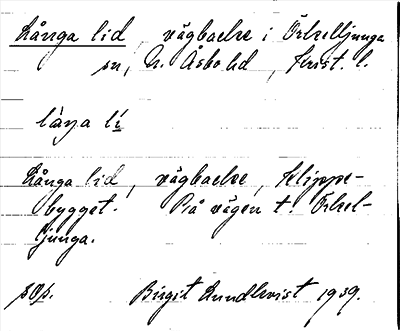 Långa lid, vägbacke i Örkelljunga
sn, N. Åsbo hd, Krist. l.
låŋa lí
Långa lid, vägbacke, Klippe-
bygget. På vägen t. Örkel-
ljunga.
sOp. Birgit Lundkvist 1939.